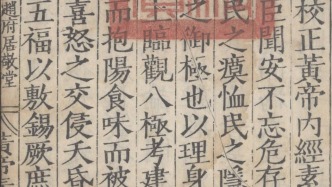 校正黃帝內經素
臣聞安不忘危存
民之瘼恤民之隱
之御極也以理身
上臨觀八極考建
而抱陽食味而被
喜怒之交侵夭昏
五福以敷錫厥庶
趙府居敬堂